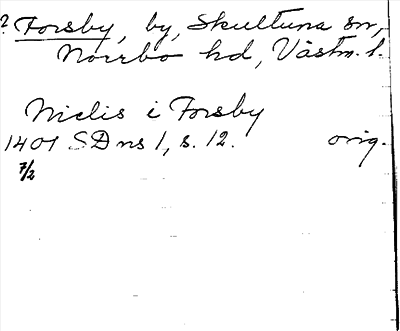 ? Forsby, by, Skultuna sn,
Norrbo hd, Västm. l.
Niclis i Forsby
1401 SDns 1, s. 12. orig.
7/2